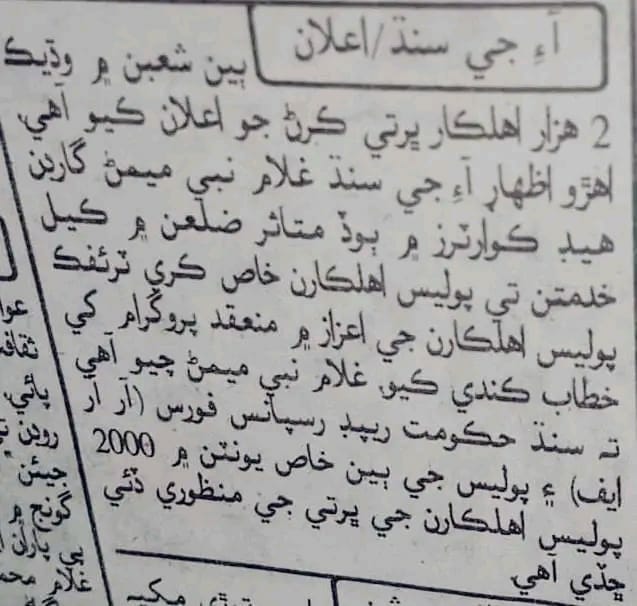 آءِ جي سنڌ/اعلان
ٻين شعبن ۾ وڌيڪ
2 هزار اهلڪار ڀرتي ڪرڻ جو اعلان ڪيو آهي.
اهڙو اظهار آءِ جي سنڌ غلام نبي ميمڻ گارڊن
هيڊ ڪوارٽرز ۾ ٻوڏ متاثر ضلعن ۾ ڪيل
خدمتن تي پوليس اهلڪارن خاص ڪري ٽرئفڪ
پوليس اهلڪارن جي اعزاز ۾ منعقد پروگرام کي
خطاب ڪندي ڪيو، غلام نبي ميمڻ چيو آهي
ته سنڌ حڪومت ريپڊ رسپانس فورس (آر آر
ايف) ۽ پوليس جي ٻين خاص يونٽن ۾ 2000
پوليس اهلڪارن جي ڀرتي جي منظوري ڏئي
ڇڏي آهي
ثقافت
جيئن
گونج ۾
غلام محمد